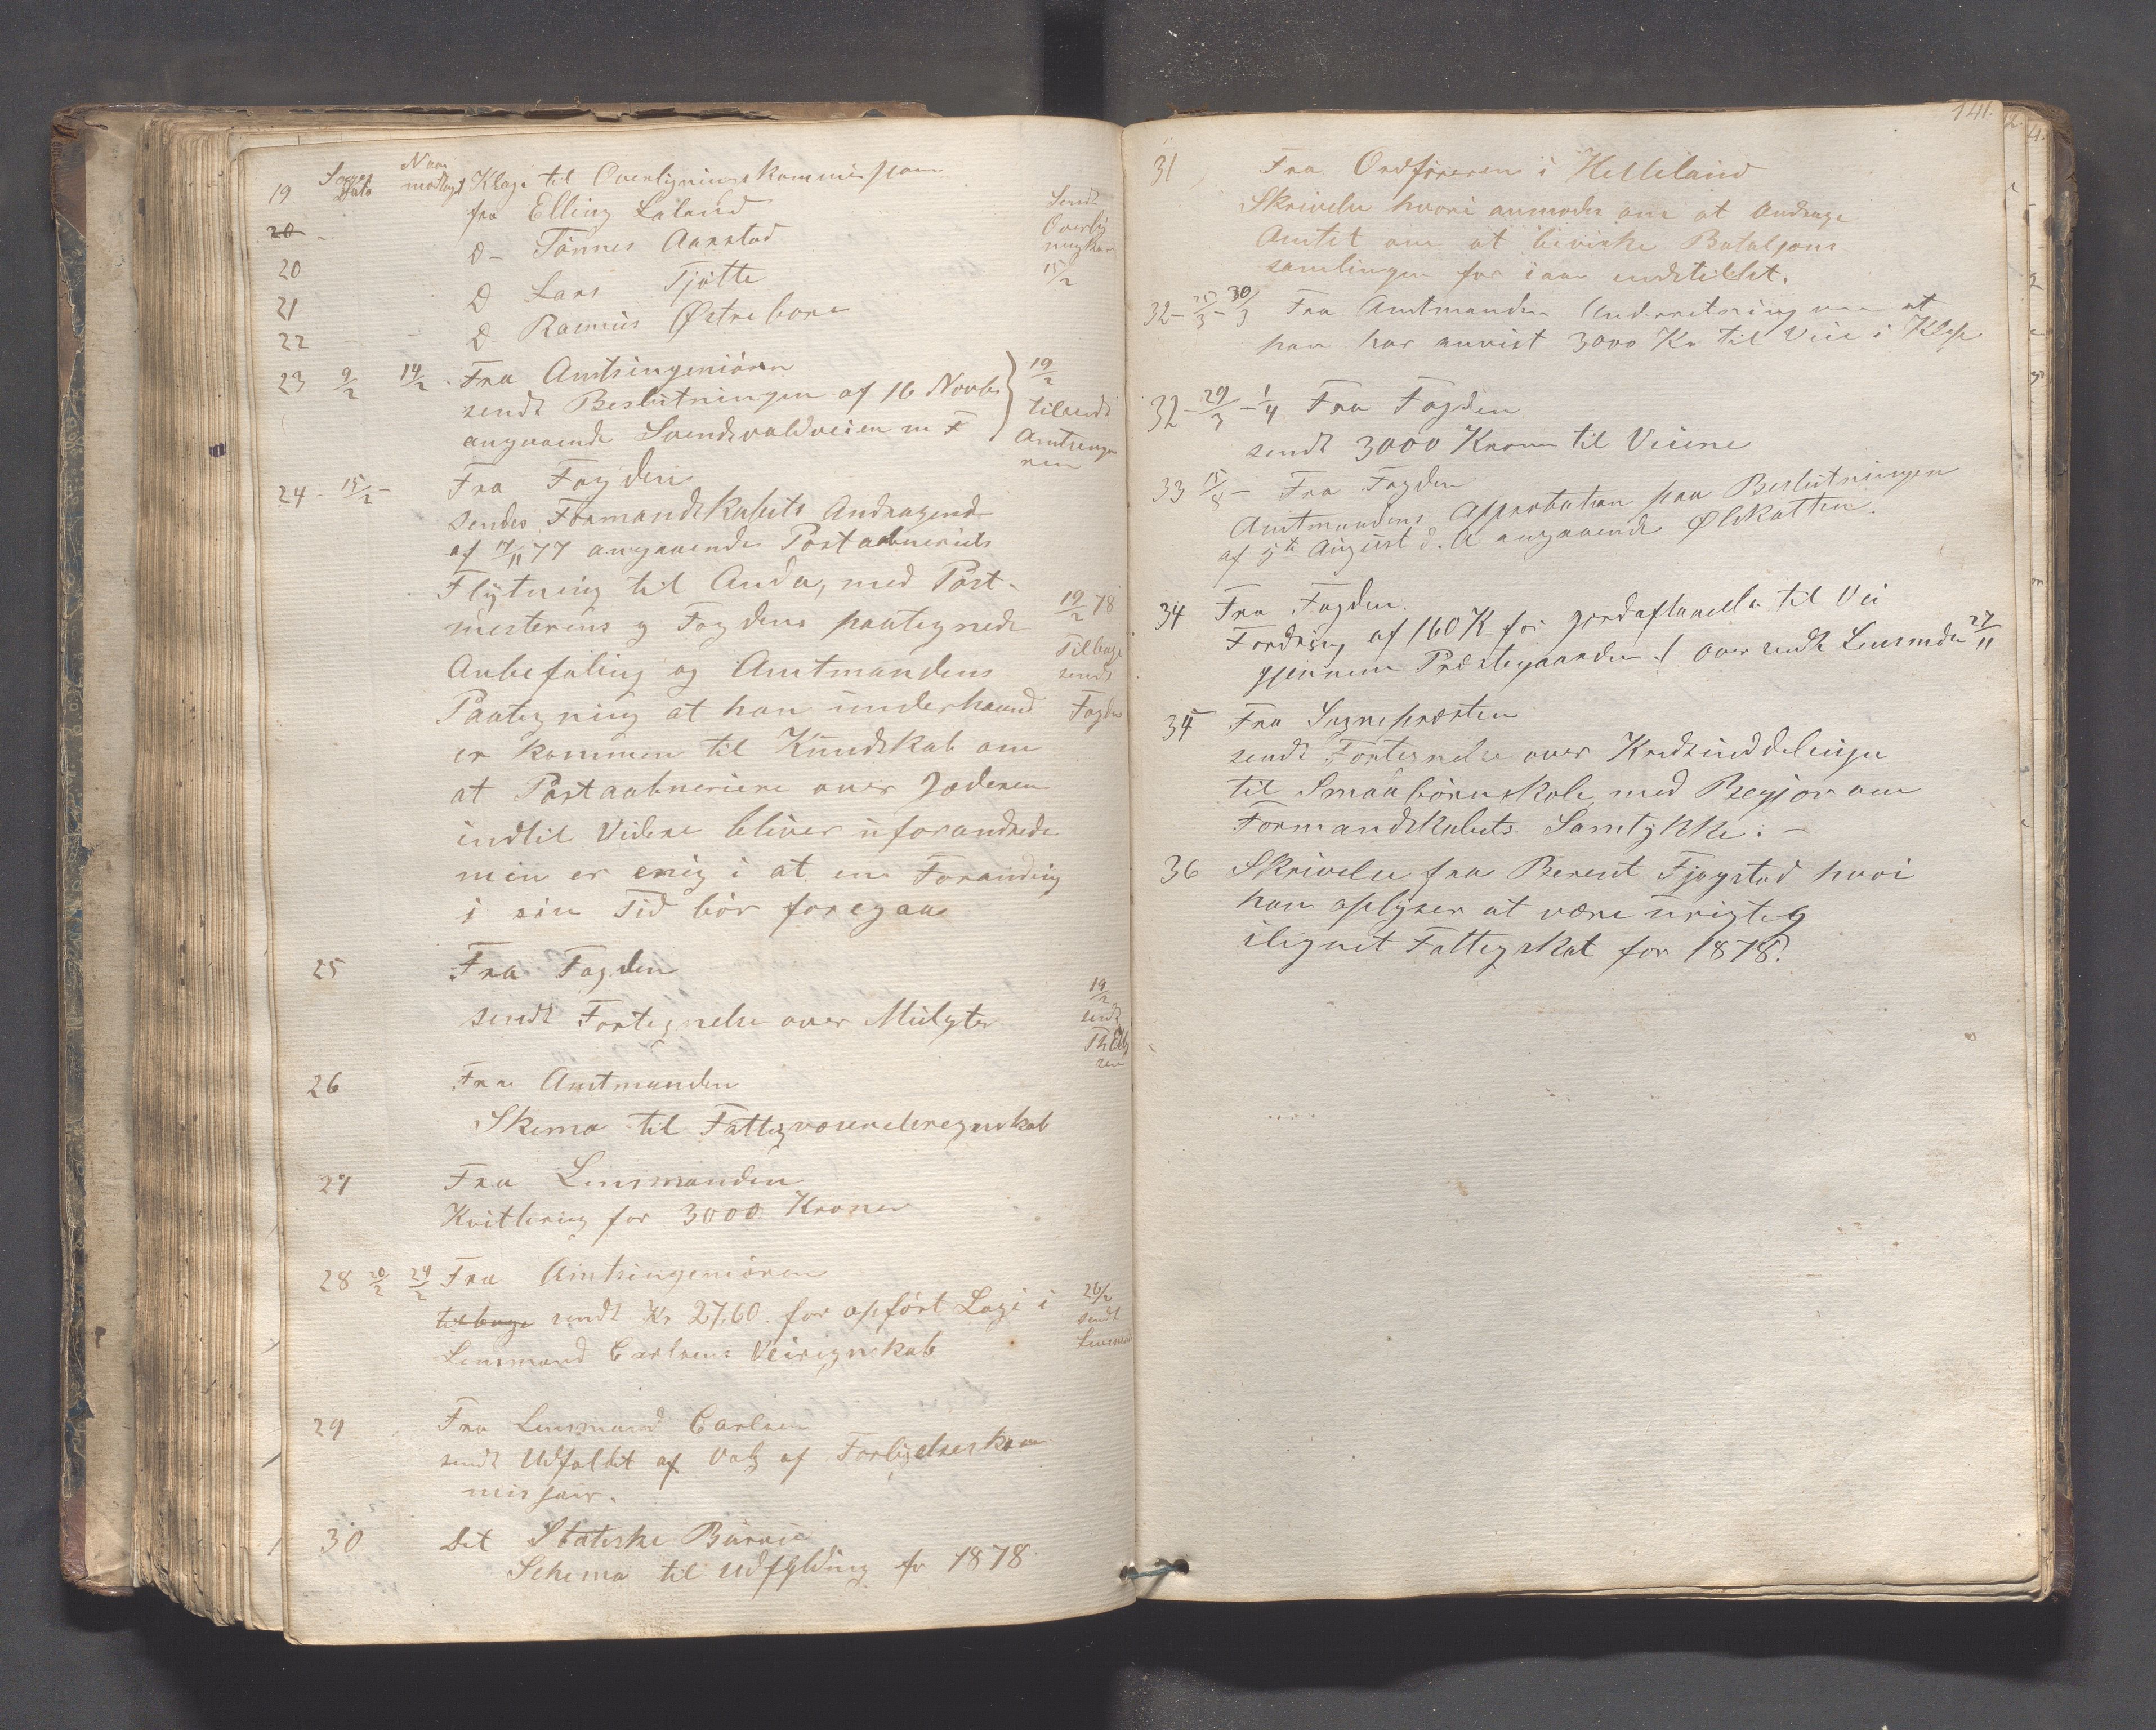 19 Sagens Dato Naar modtaget Klage til Overligningskommissionen
fra Elling Laland
20 D- Tönnes Aarstad
20
D Lars Tjötte
21
D Rasmus Østrebore
22
Sendt
Overlig
ningskom
15/2
23 9/2 14/2 Fra Amtsingeniören
sendt Beslutningen af 16 Novbr
angaaende Svendsvoldveien m F
19/2
tilsendt
Amtsingen
ren
24 - 15/2 - Fra Fogden
sendes Formandskabets Andragende
af 17/11 77 angaaende Postaabneriets
Flytning til Anda, med Post-
mesterens og Fogdens paategnede
Anbefaling og Amtmandens
Paategning at han underhaand
er kommen til Kundskab om
at Postaabneriene over Jæderen
indtil Videre bliver uforandrede
men er enig i at en Forandring
i sin Tid bör foregaa
19/2 78
Tilbage
sendt
Fogden
25 Fra Fogden
sendt Fortegnelse over Mulgter
19/2
sendt
26 Fra Amtmanden
Skema til Fattigvæsensregnskab
27 Fra Lensmanden
Kvittering for 3000 Kroner
28 20/2 24/2 Fra Amtsingeniören
tilbage sendt Kr 27.60 for opfört Logi i
Lensmand Carlsens Veiregnskab
26/2
sendt
Lensmand
29 Fra Lensmand Carlsen
sendt Udfaldet af Valg af Forligelseskom
missær.
30 Det Statiske Bureau
Schema til udfylding for 1878
141.
31 Fra Ordföreren i Helleland
Skrivelse hvori anmodes om at Andrage
Amtet om at bevirke Bataljons
samlingen for iaar indstillet.
32 - 25/3 - 30/3 Fra Amtmanden Underretning om at
han har anvist 3000 Kr til Veie i Klep
32 - 29/3 - 1/4 Fra Fogden
sendt 3000 Kroner til Veiene
33 15/8 - Fra Fogden
Amtmandens Approbation paa Beslutningen
af 5te August d. A angaaende Ølskatten.
34 Fra Fogden.
Fordring af 160 K for jordafstaaelse til Vei
gjennem Præstegaarden. / Over sendt Lensmden 27/11
35 Fra Sognepræsten
sendt Fortegnelse over Kredsinddelingen
til Smaabörnskole med Begjær om
Formandskabets Samtykke. -
36 Skrivelse fra Berent Tjøgstad hvori
han oplyser at være urigtig
ilignet Fattigskat for 1878.